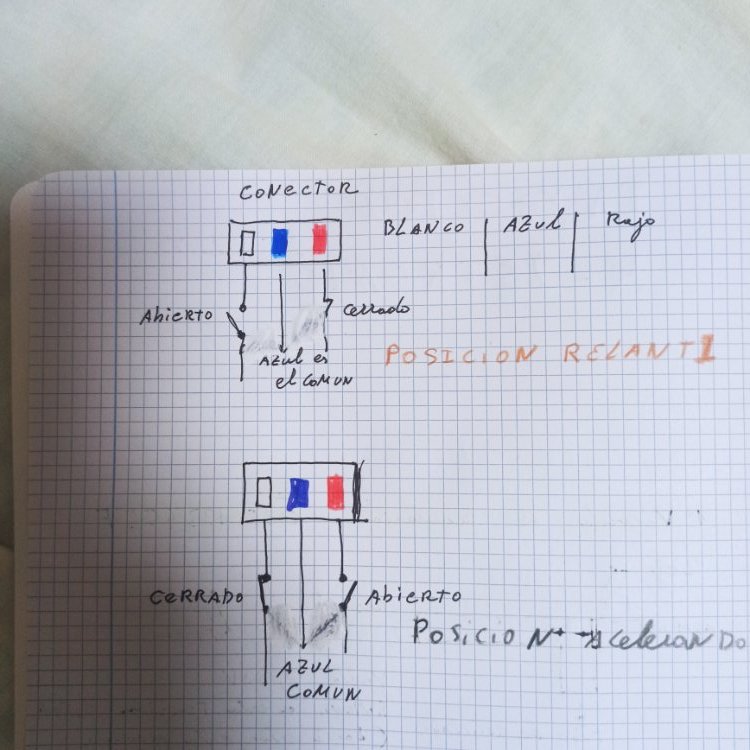 CONECTOR
BLANCO | AZUL | Rojo
Abierto
cerrado
AZUL es
el COMUN
POSICION RELANTI
CERRADO
Abierto
AZUL
COMUN